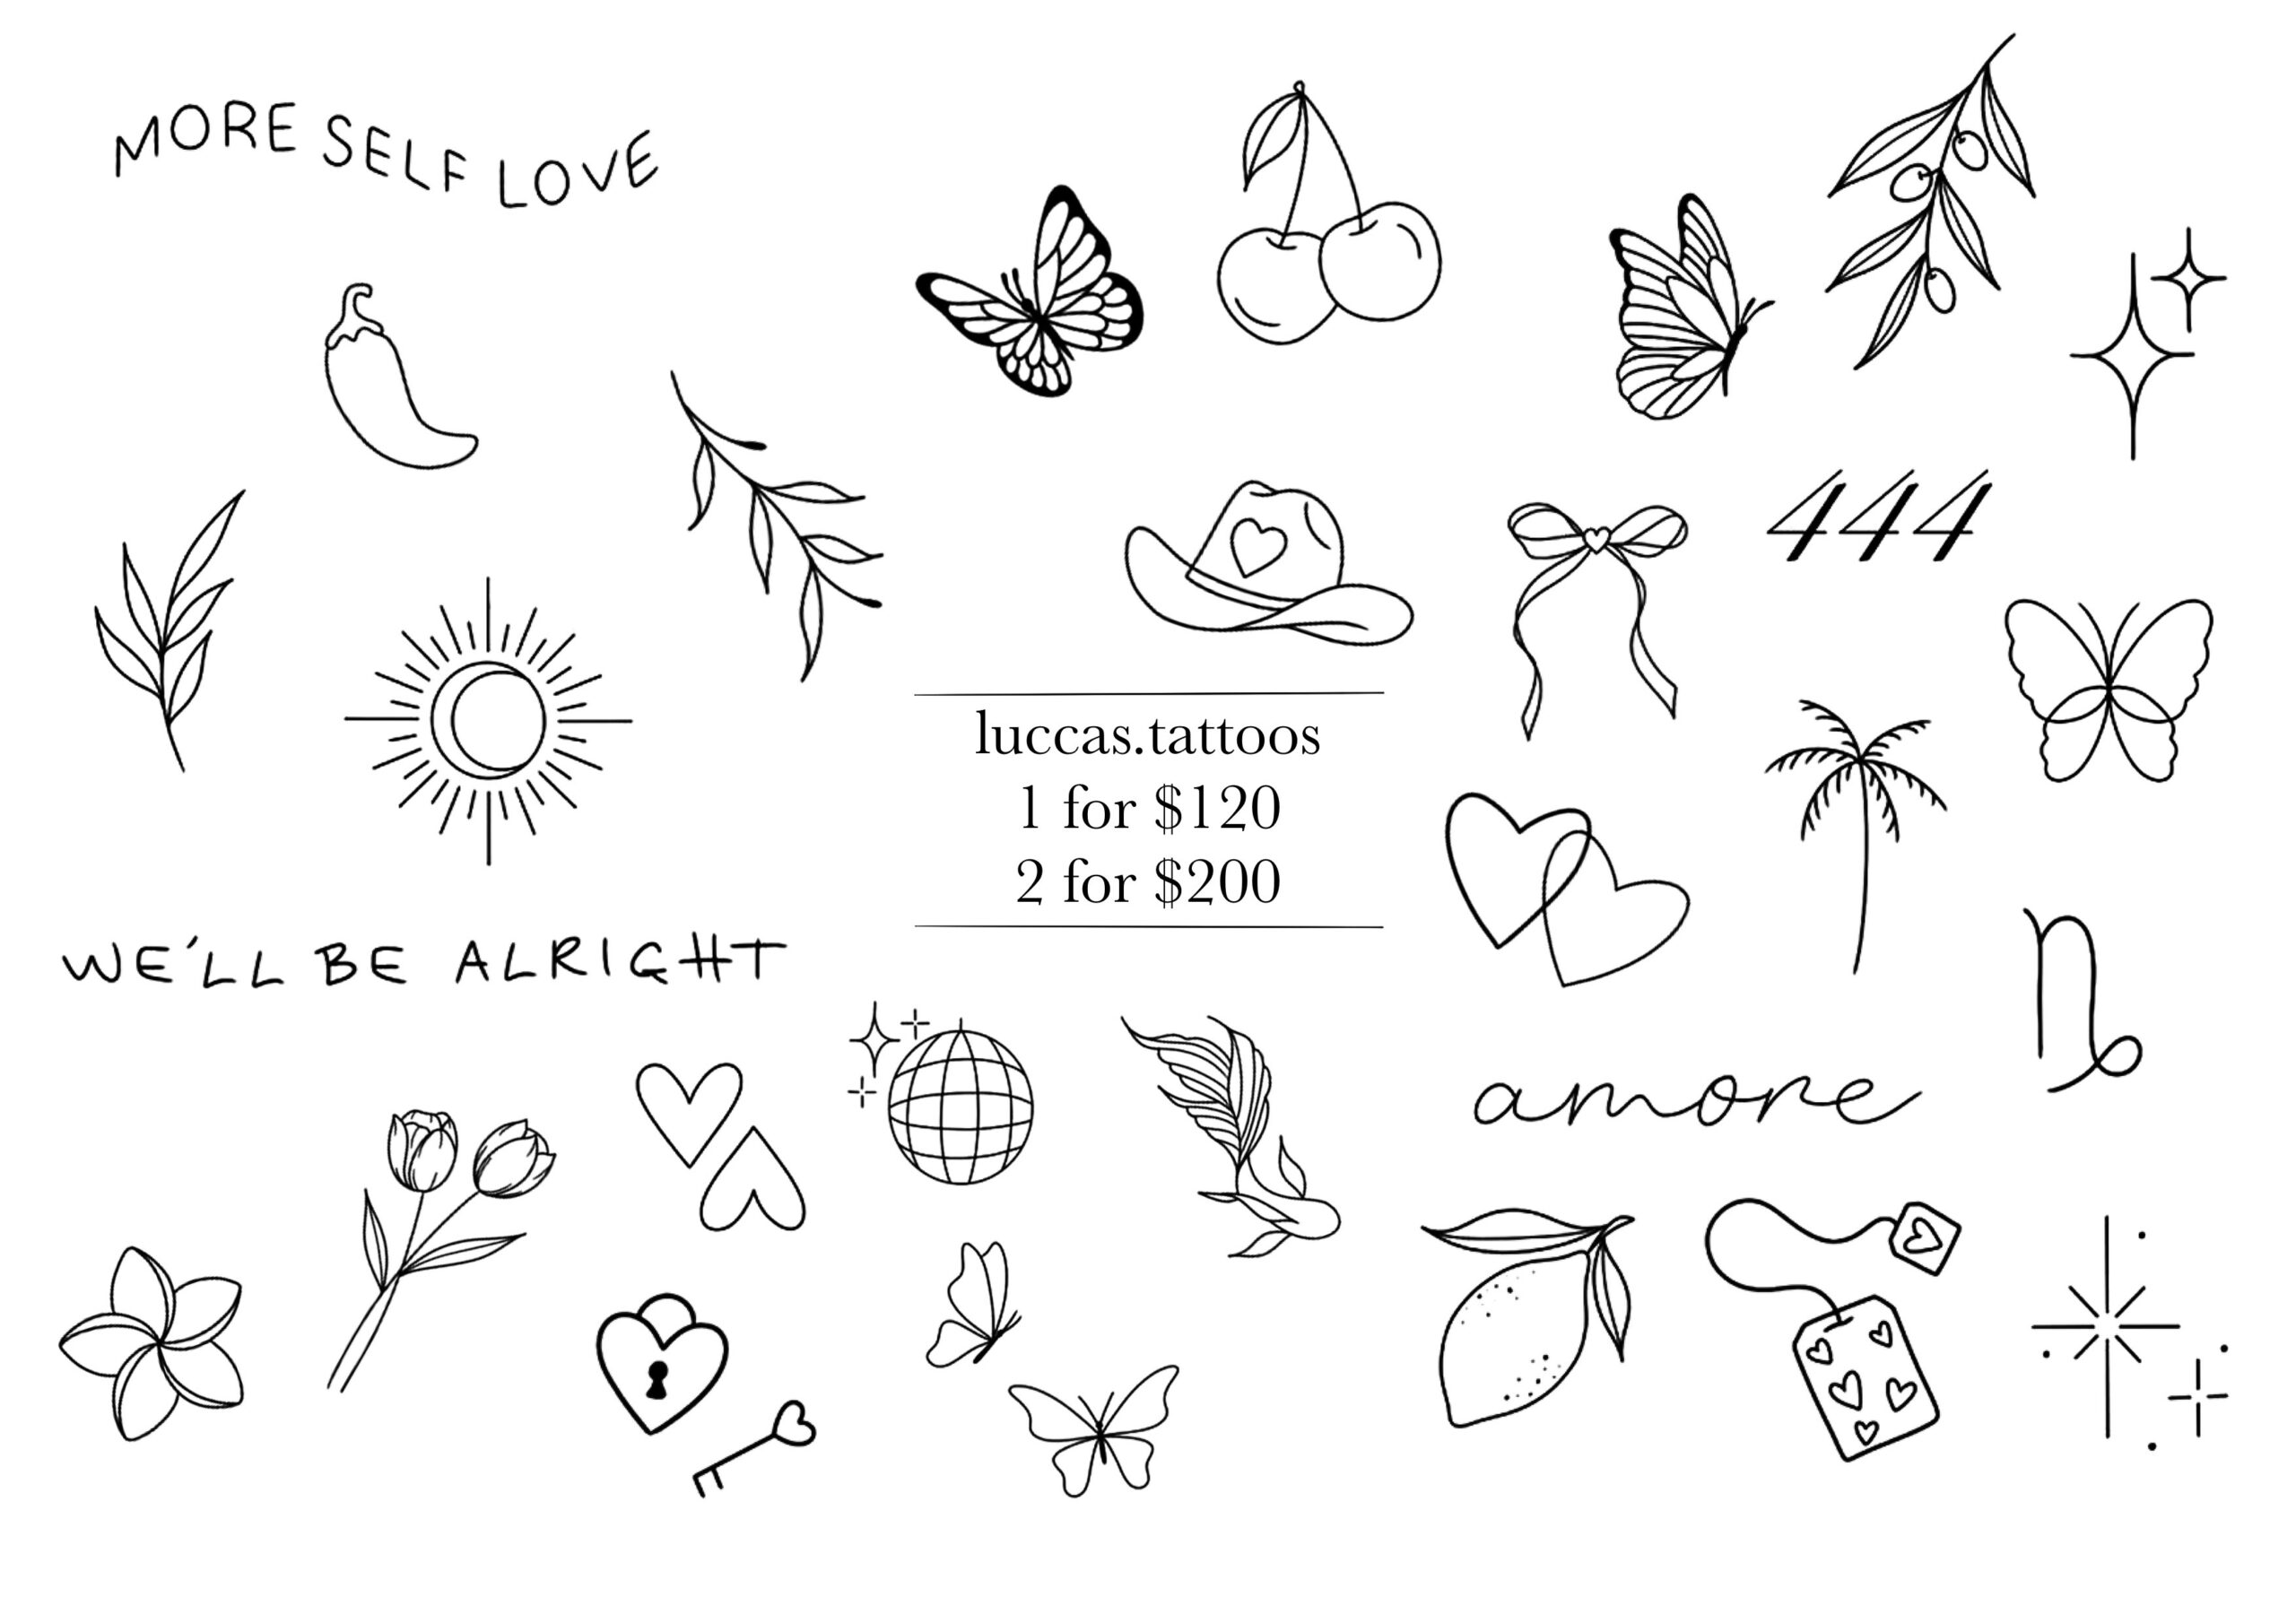 MORE SELF LOVE
444
luccas.tattoos
1 for $120
2 for $200
WE'LL BE ALRIGHT
amore